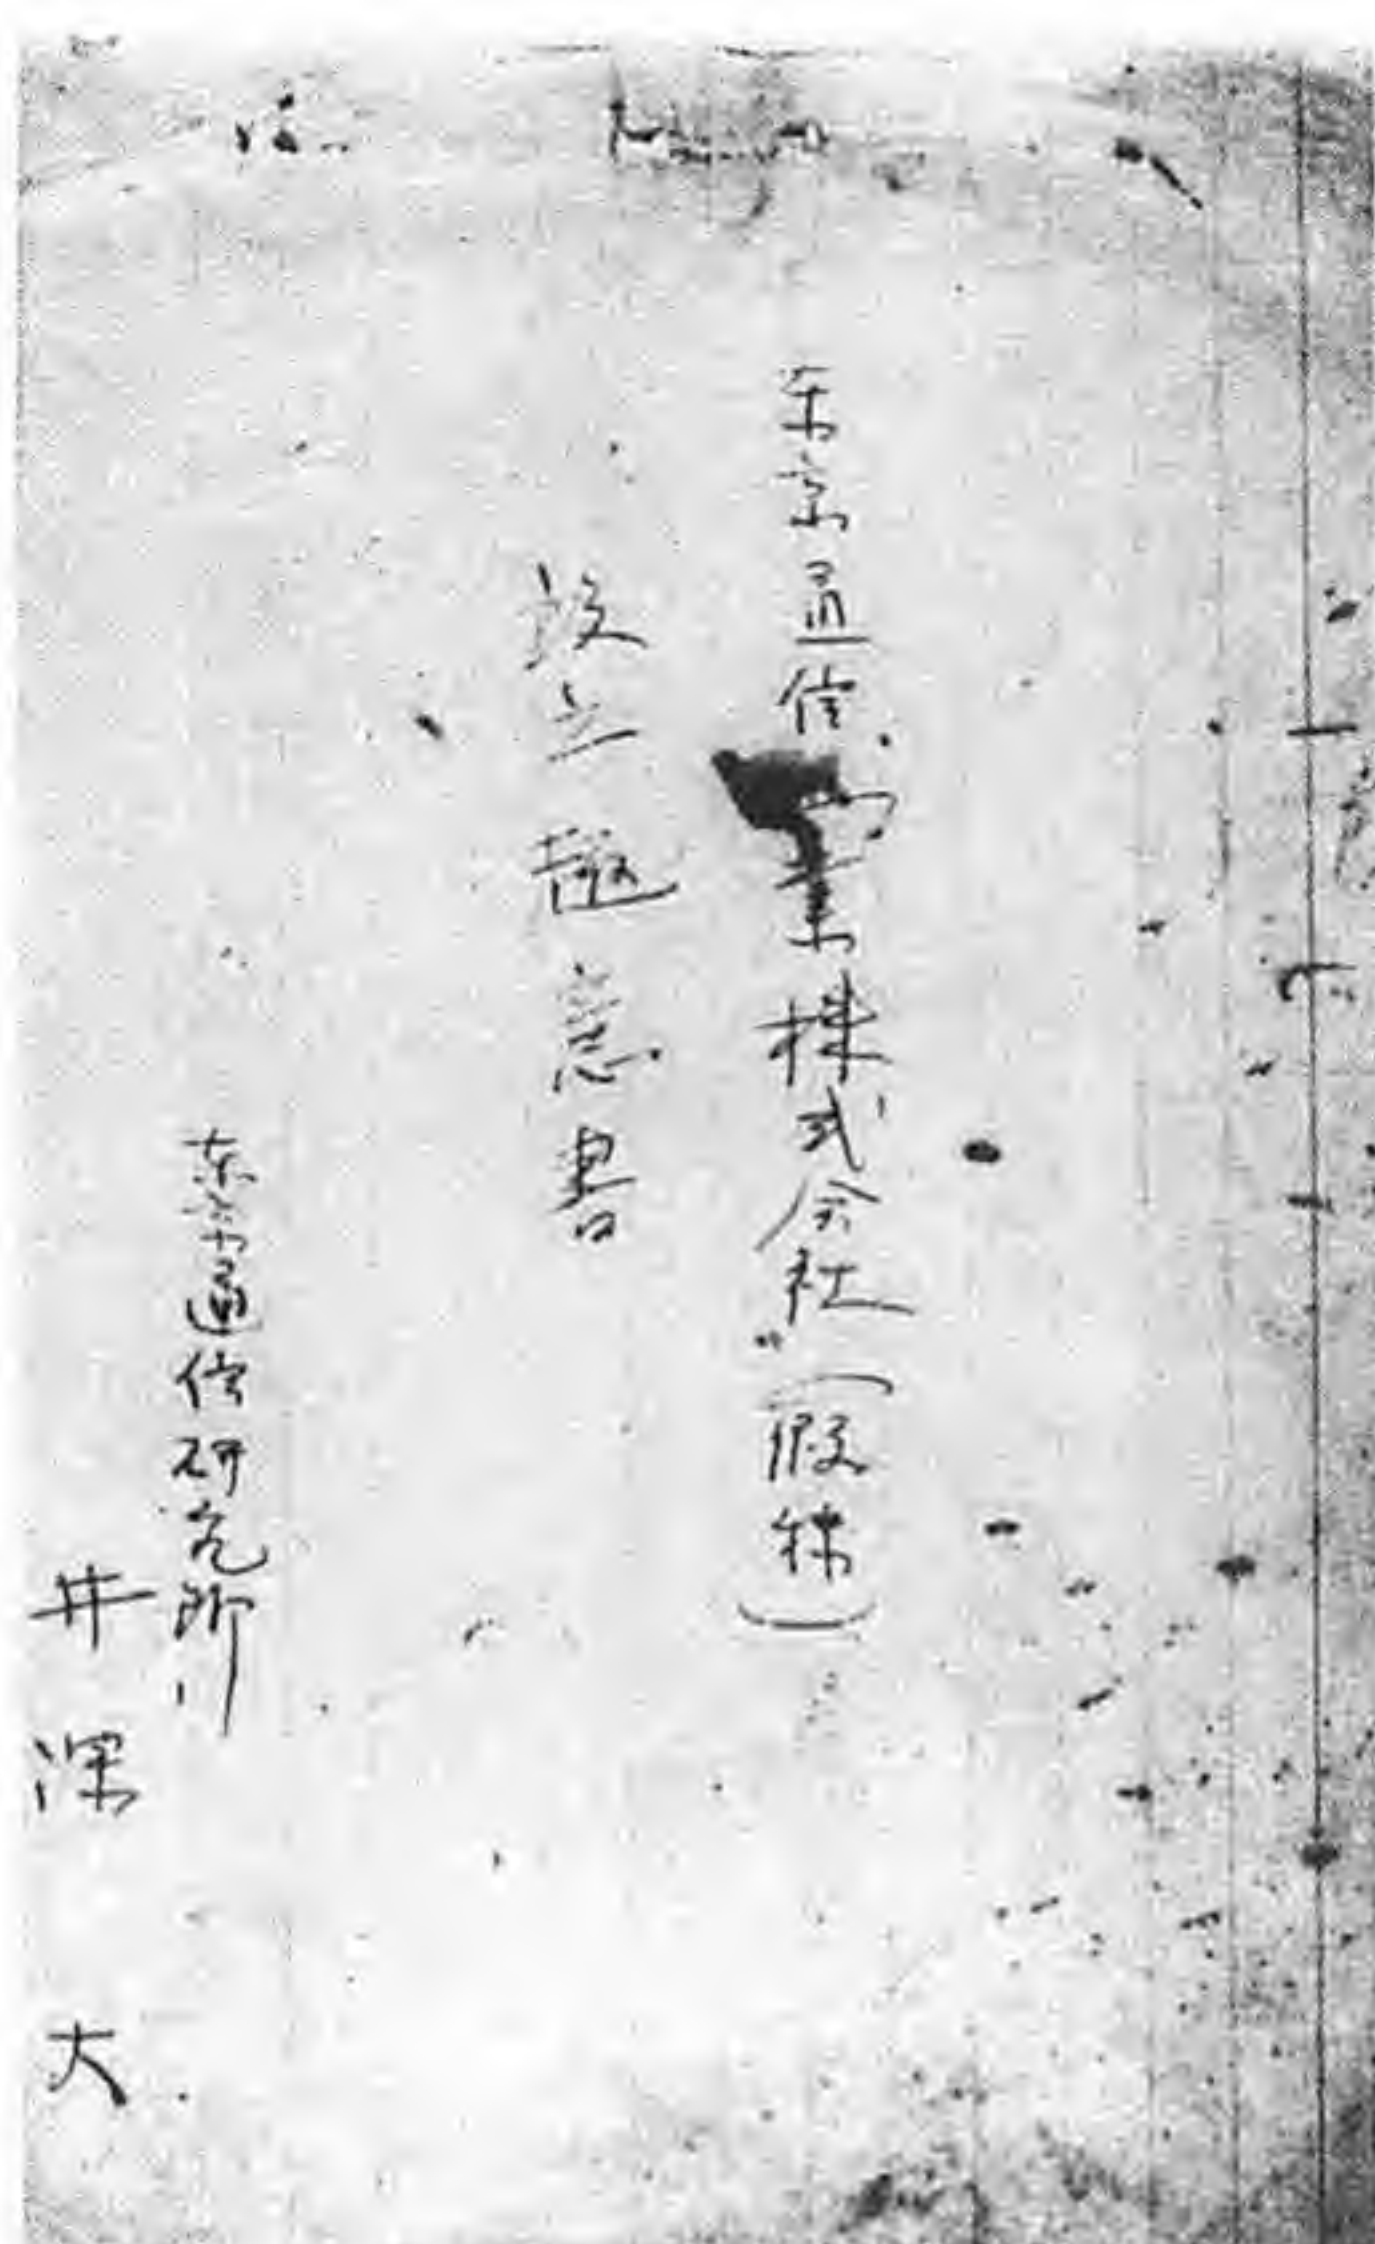 東京通信株式会社（假称）
設立趣意書
東京通信研究所
井深 大